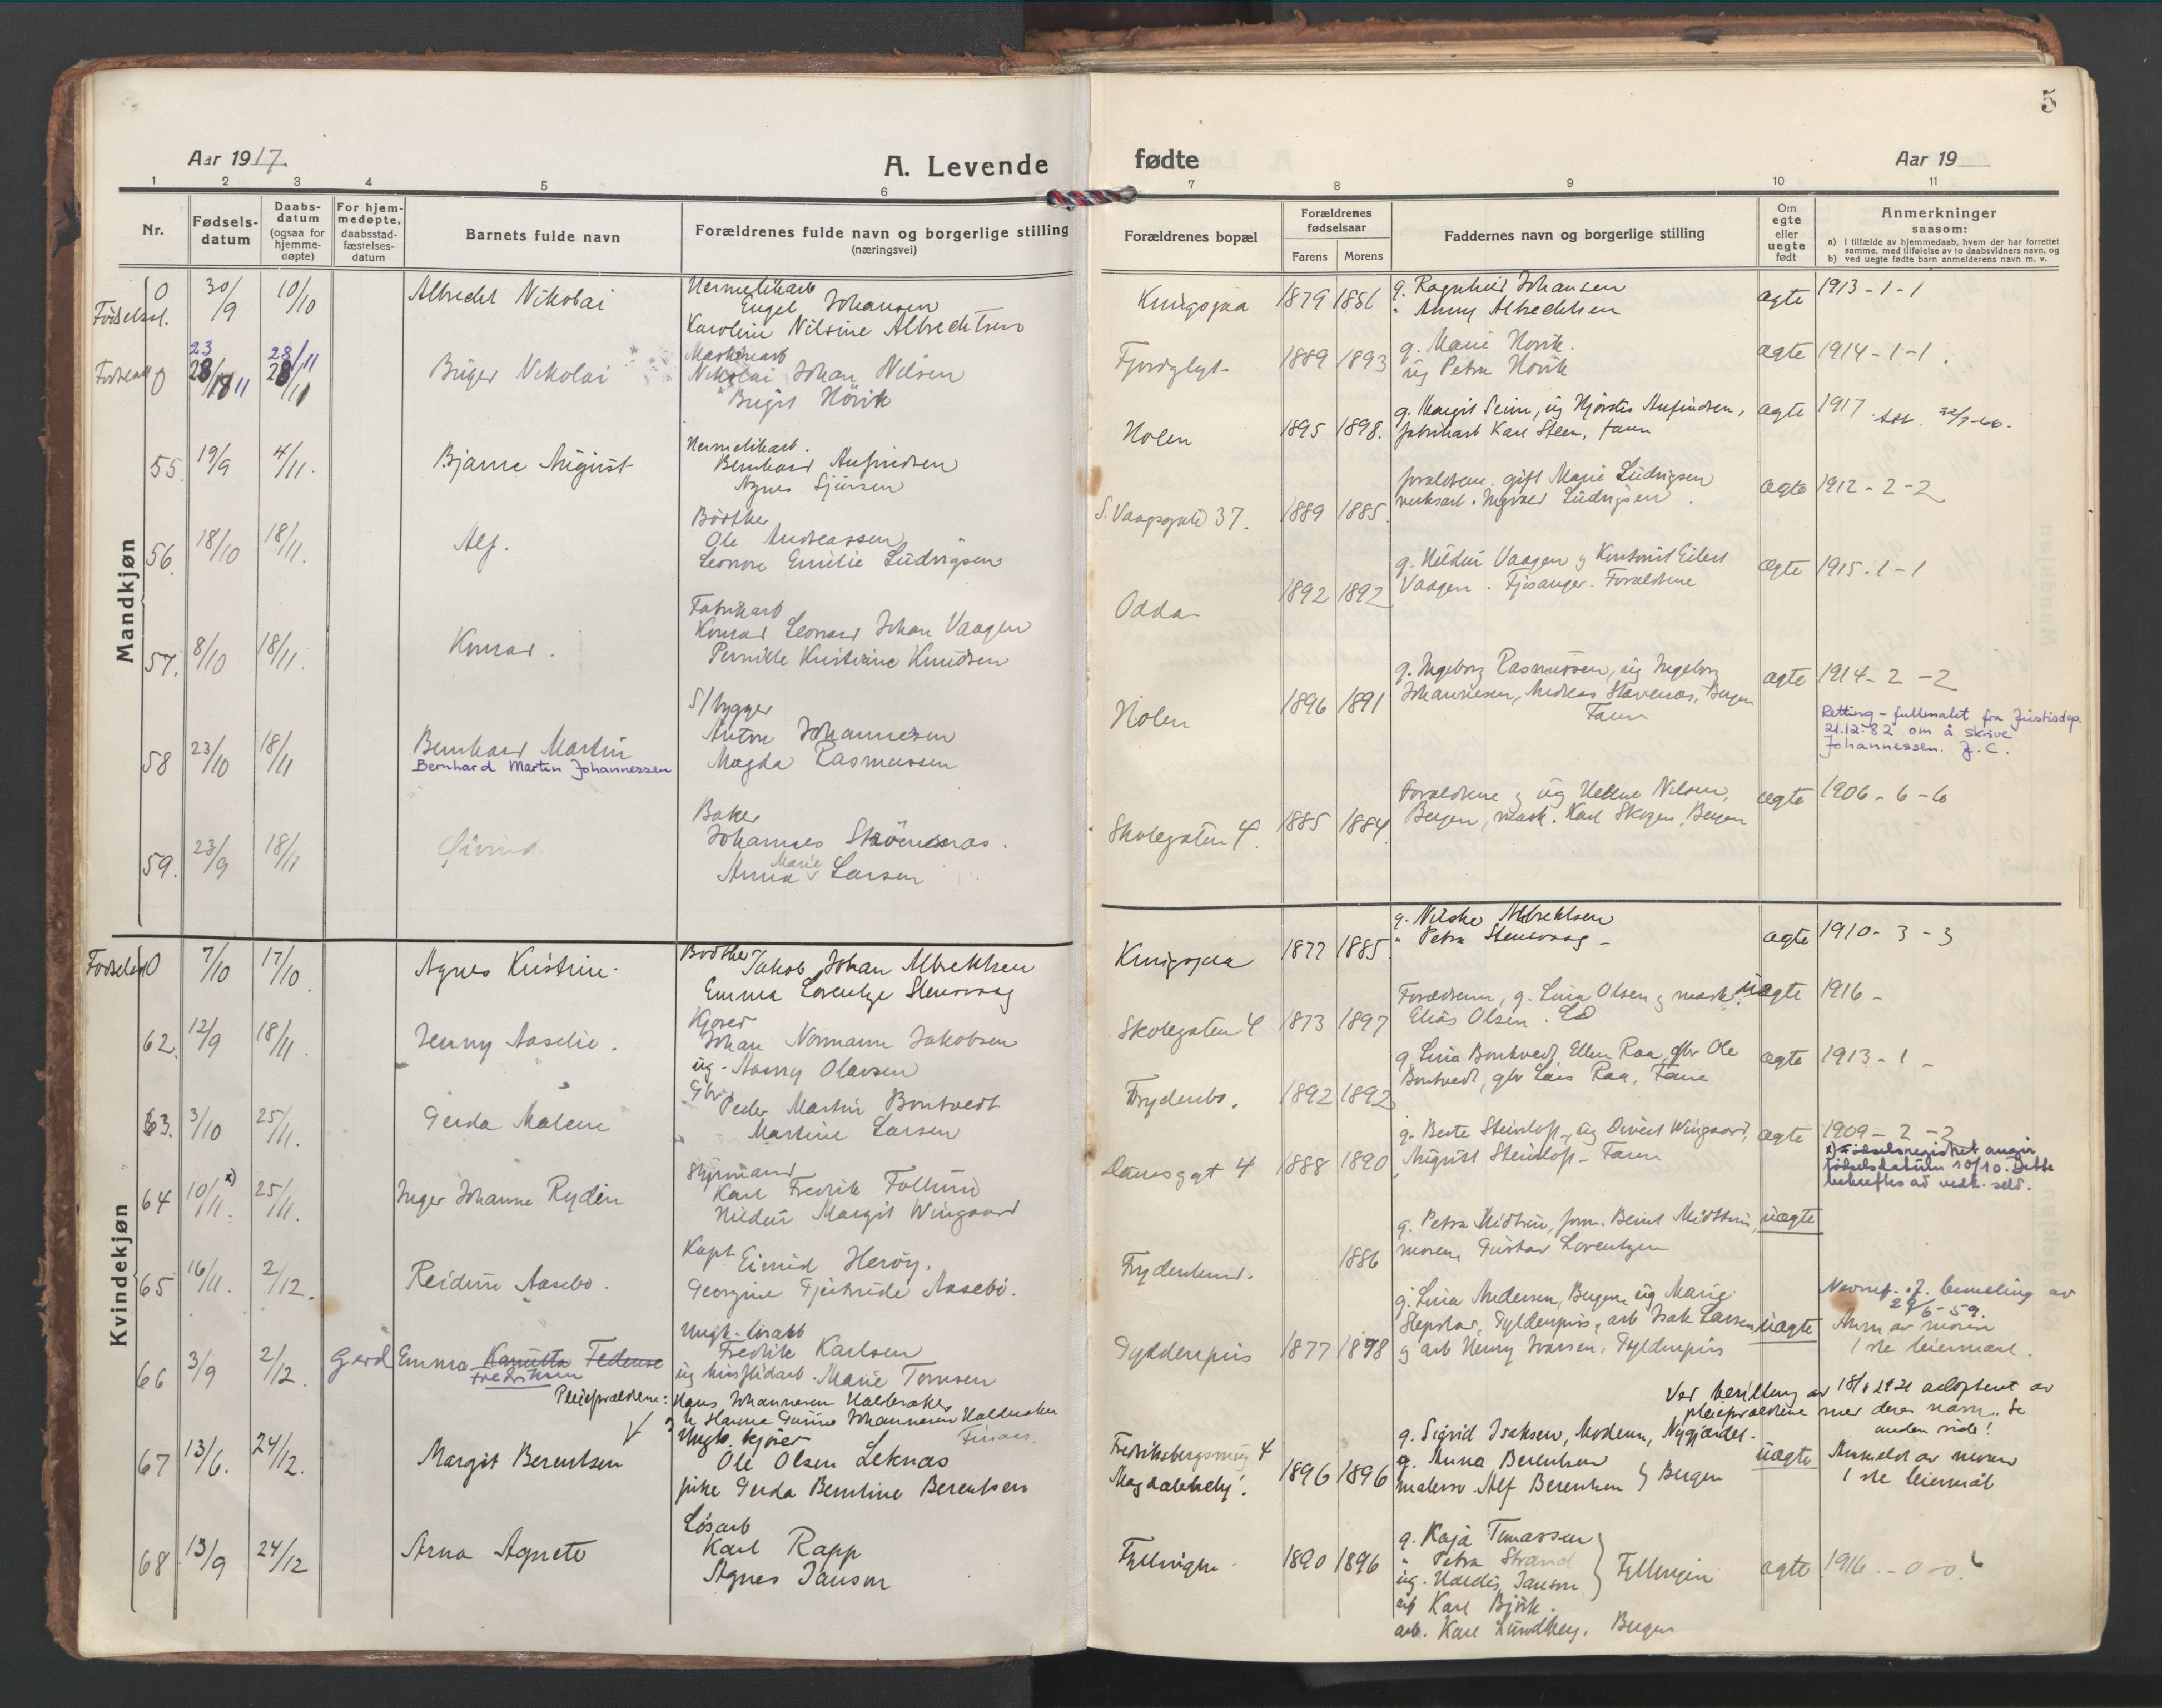 5
Aar 1917
A. Levende
fødte
Aar 19
1 2 3 4 5 6 7 8 9 10 11
Nr.
Fødsels-
datum
Daabs-
datum
(ogsaa for
hjemme-
døpte)
For hjem-
medøpte,
daabsstad-
fæstelses-
datum
Barnets fulde navn
Forældrenes fulde navn og borgerlige stilling
(næringsvei)
Forældrenes bopæl
Forældrenes
fødselsaar
Farens Morens
Faddernes navn og borgerlige stilling
Om
egte
eller
uegte
født
Anmerkninger
saasom:
a) i tilfælde av hjemmedaab, hvem der har forrettet
samme, med tilføielse av to daabsvidners navn, og
b) ved uegte fødte barn anmelderens navn m. v.
Mandkjøn
0 30/9 10/10 Albrecht Nikolai
Hermetikarb
Engel Johansen
Karoline Nilsine Albrechtsen
1879 1886
g. Ragnhild Johansen
" Anny Albrechtsen
ægte 1913-1-1
0 23 28/11
Birger Nikolai
Maskinarb
Nikolai Johan Nilsen
Birgit Hövik
1889 1893
g. Marie Hövik.
ug Petra Hövik
ægte 1914-1-1.
55. 19/9 4/11. Bjarne August
Hermetikarb.
Bernhard Anfindsen
Agnes Sjursen
Holen 1895 1898.
g. Margit Seim, ug Hjördis Anfindsen,
fabrikarb Karl Steen, Fana
ægte 1917.
56. 18/10 18/11. Alf.
Bödtker
Ole Andreassen
Leonore Emilie Ludvigsen
S. Vaagsgate 37. 1889 1885.
forældrene. gift Marie Ludvigsen
verksarb. Ingvald Ludvigsen.
ægte 1912-2-2
57. 8/10 18/11. Konrad.
Fabrikarb
Konrad Leonard Johan Vaagen
Pernille Kristiane Knudsen
Odda 1892 1892
g. Hildur Vaagen og Kontorist Eilert
Vaagen. Fjøsanger. Forældrene
ægte 1915.1-1
58 23/10 18/11 Bernhard Martin
Bernhard Martin Johannessen
S/bygger
Anton Johannesen
Magda Rasmussen
Holen 1896 1891
g. Ingeborg Rasmussen, ug Ingeborg
Johannesen, Andreas Stavenes, Bergen
Fana
ægte 1914-2-2
Retting - fullmakt fra Justisdep.
21.12.82 om å skrive
Johannessen. J.C.
59. 23/9 18/11 Øivind
Baker
Johannes Skönenæs.
Anna Marie Larsen
Skolegaten 4. 1885 1884.
Forældrene og ug Helene Nilsen,
Bergen, mask. Karl Skogen, Bergen
ægte 1906-6-6
Kvindekjøn
0 7/10 17/10. Agnes Kristine.
Bödtker Jakob Johan Albrektsen
Emma Lorentze Stensvaag
1877 1885.
g. Nilske Albrektsen
" Petra Stensvaag -
ægte 1910-3-3
62. 12/9 18/11. Jenny Aaselie.
Kjører
Johan Normann Jakobsen
ug. Aasny Olavsen
Skolegaten 4 1873 1897
Forældrene, g. Lina Olsen og mask.
Elias Olsen.
uægte 1916-
63. 3/10 25/11. Gerda Malene
Gbr.
Peder Martin Bontvedt
Martine Larsen
Frydenbo. 1892 1892
g. Lina Bontvedt, Ellen Raa, gbr Ole
Bontvedt, gbr Lars Raa, Fane
ægte 1913-1-
64 10/11. x) 25/11. Inger Johanne Rydén
Styrmand
Karl Fredrik Follund
Hildur Margit Wingaard
Damsgt 4 1888 1890
g. Berte Steinlop, ug Divert Wingaard,
August Steinlop - Fana
ægte 1909-2-2
x) Fødselsregistret angir
fødselsdatum 10/10. Dette
bekreftes av vedk. selv.
65 16/11. 2/12. Reidun Aasebo.
Kapt Eivind Heröy.
Georgine Gjertrude Aasebö.
Frydenlund. 1886
g. Petra Midttun, form. Bernt Midttun,
moren, Gustav Lorentzen
uægte
66 3/9 2/12. Gerd Emma Kamitta Fedense
Fredriksen
Ungk. lösarb
Fredrik Karlsen
ug husflidarb. Marie Tomsen
Gyldenpris 1877 1898
g. Lina Andersen, Bergen, ug Marie
Slepstad, Gyldenpris, arb Isak Larsen,
og arb Henry Ivarsen, Gyldenpris
uægte
Navnef. if. bemeling av
29/6-59.
Anm av moren
1ste leiermaal.
Pleieforældrene: Hans Johannesen Haldoraker
Ved bevilling av 18/1 1921 adoptert av
pleieforældrene med deres navn. Se
anden side!
67 13/6. 24/12. Margit Berentsen
Ungk. kjører
Ole Olsen Leknæs
pike Gerda Berntine Berentsen
4
1896 1896
g. Sigrid Isaksen, Moderen, Nygjærdet.
g. Anna Berentsen
malersv. Alf Berentsen } Bergen
uægte Anmeldt av moren
1ste leiermål
68 13/9 24/12 Arna Agnete
Løsarb
Karl Rapp
Agnes Janson
Fyllingen 1890 1896
g. Kaja Tomassen
" Petra Strand
ug. Haldis Janson } Fyllingen
arb Karl Björk.
arb. Karl Lundberg, Bergen
ægte 1916.-0-0